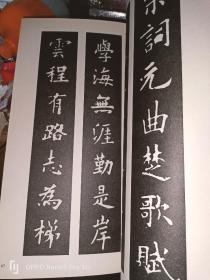 宋詞元曲楚歌賦
學海無涯勤是岸
雲程有路志為梯